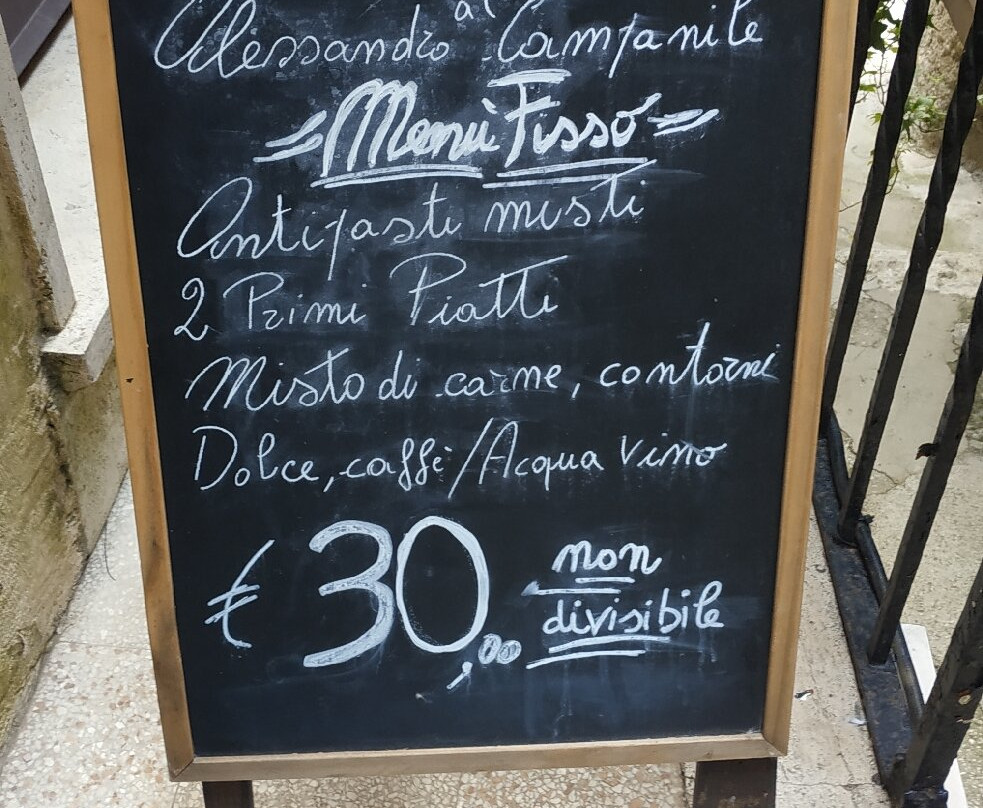 Alessandro al Campanile
Menù Fisso
Antipasti misti
2 Primi Piatti
Misto di carne, contorni
Dolce, caffè/Acqua Vino
€ 30,00 non
divisibile